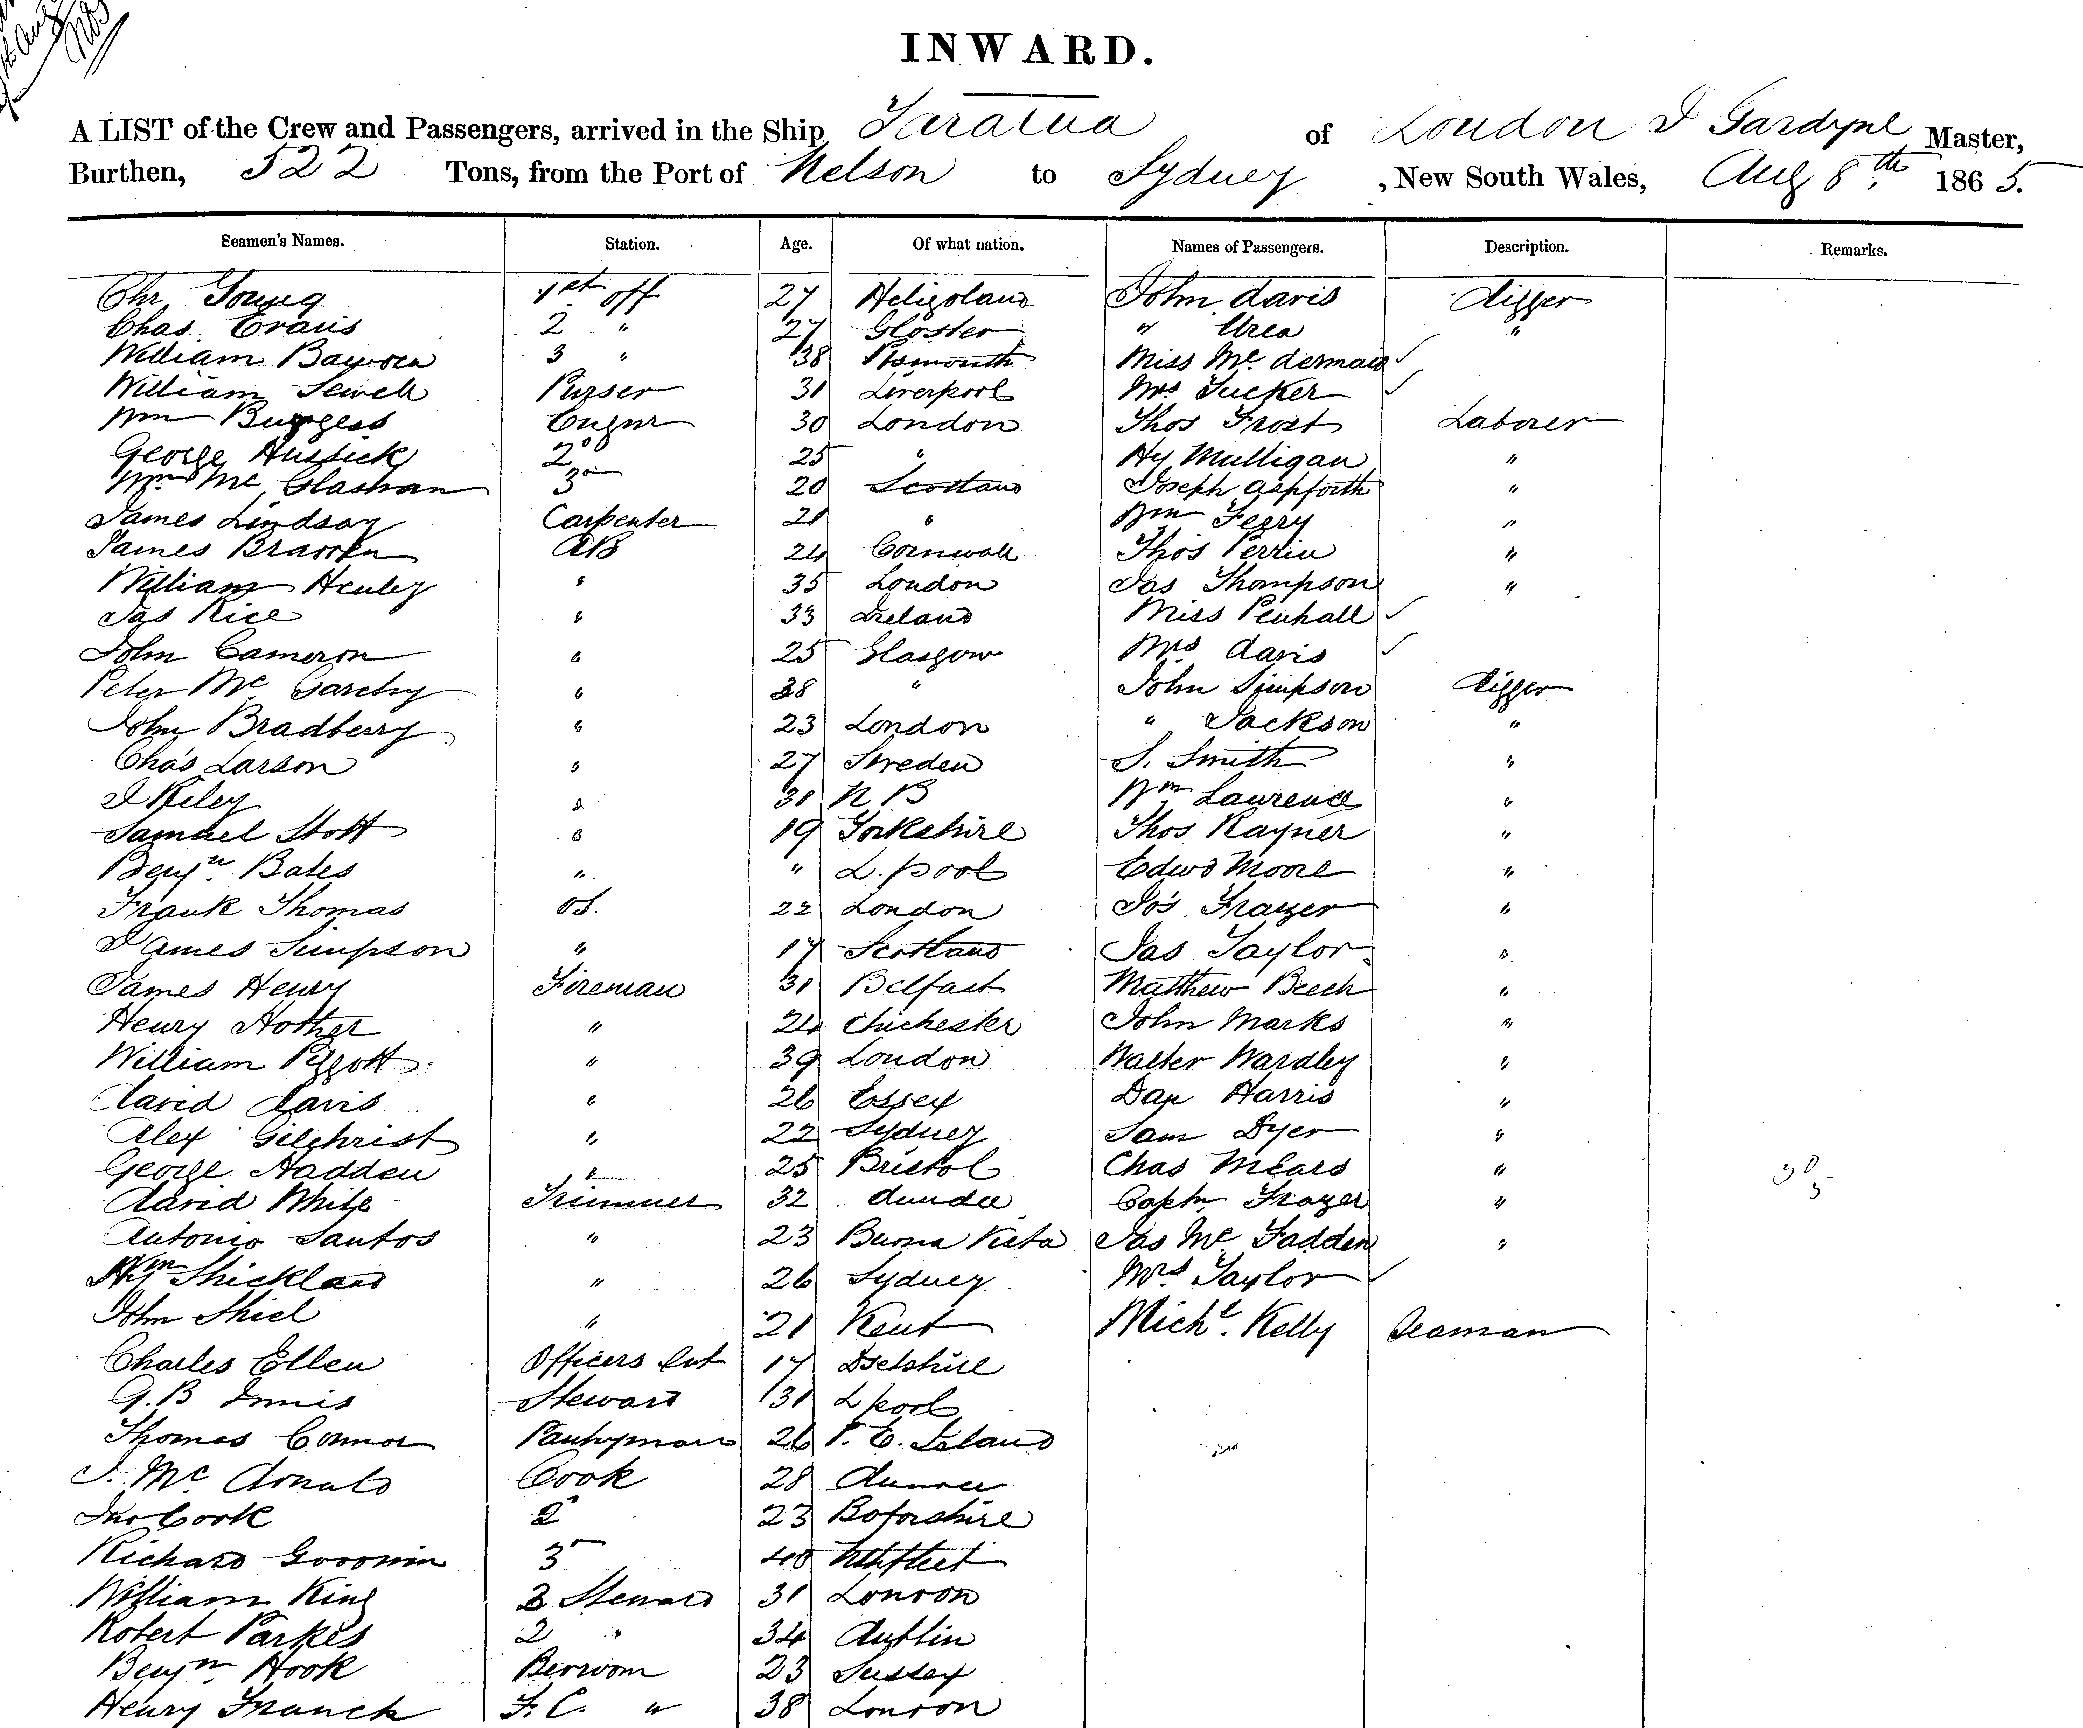 INWARD.
A LIST of the Crew and Passengers, arrived in the Ship Tararua of London J Gardyne Master,
Burthen, 522 Tons, from the Port of Nelson to Sydney, New South Wales, Aug 8th 1865.
Seamen's Names. Station. Age. Of what nation. Names of Passengers. Description. Remarks.
Chr Young 1st off 27 Heligoland John Davis Digger
Chas. Evans 2 " 27 Gloster " Urea "
William 3 " 38 Miss Mc Dermaid
William Sewell Purser 31 Liverpool Mrs Tucker
Wm Burgess Engnr 30 London Thos Frost Laborer
George Hussick 2d 25 " Hy Mulligan "
Wm Mc Glashan 3d 20 Scotland Joseph Aspforth "
James Lindsay Carpenter 21 " Wm Ferry "
James AB 24 Cornwall Thos Perrin "
William Henley " 35 London Jas Thompson "
Jas Rice " 33 Ireland Miss Penhall
John Cameron " 25 Glasgow Mrs Davis
Peter Mc " 38 " John Simpson Digger
John Bradberry " 23 London " Jackson "
Chas Larson " 27 Sweden S. Smith "
J Riley " 31 N B Wm Laurence "
Samuel Stott " 19 Yorkshire Thos Rayner "
Benjn Bates " " L.pool Edwd Moore "
Frank Thomas OS. 22 London Jos Frazer "
James Simpson " 17 Scotland Jas Taylor "
James Henry Fireman 31 Belfast Matthew Beech "
Henry Hother " 24 Chichester John Marks "
William Piggott " 39 London Walter Wardley "
David Davis " 26 Essex Dan Harris "
Alex Gilchrist " 22 Sydney Sam Dyer "
George Hadden " 25 Bristol Chas Mears "
David White Trimmer 32 Dundee Captn Frazer "
Antonio Santos " 23 Buona Vista Jas Mc Fadden "
Wm Shickland " 26 Sydney Mrs Taylor
John Shiel " 21 Kent Michl. Kelly Seaman
Charles Ellen Officers 17
G.B Innis Steward 31 Lpool
Thomas Connor Pantryman 26 P. E. Island
J. Mc Donald Cook 28 Dundee
Jno Cook 2d 23
Richard Goodwin 3 40 Nthfleet
William King 2 Steward 31 London
Robert Parkes 2 " 34 Dublin
Benjn Hook Bedroom 23 Sussex
Henry Franck F. C. " 38 London